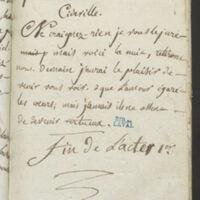 Cidville.
Ne craignez rien je vous le jure
mais voici la nuit, retirons
nous. Demain j'aurai le plaisir de
venir vous voir. que l'amour égare
les cœurs, mais jamais il ne
de devenir vertueux.
Fin de L'acte 1er